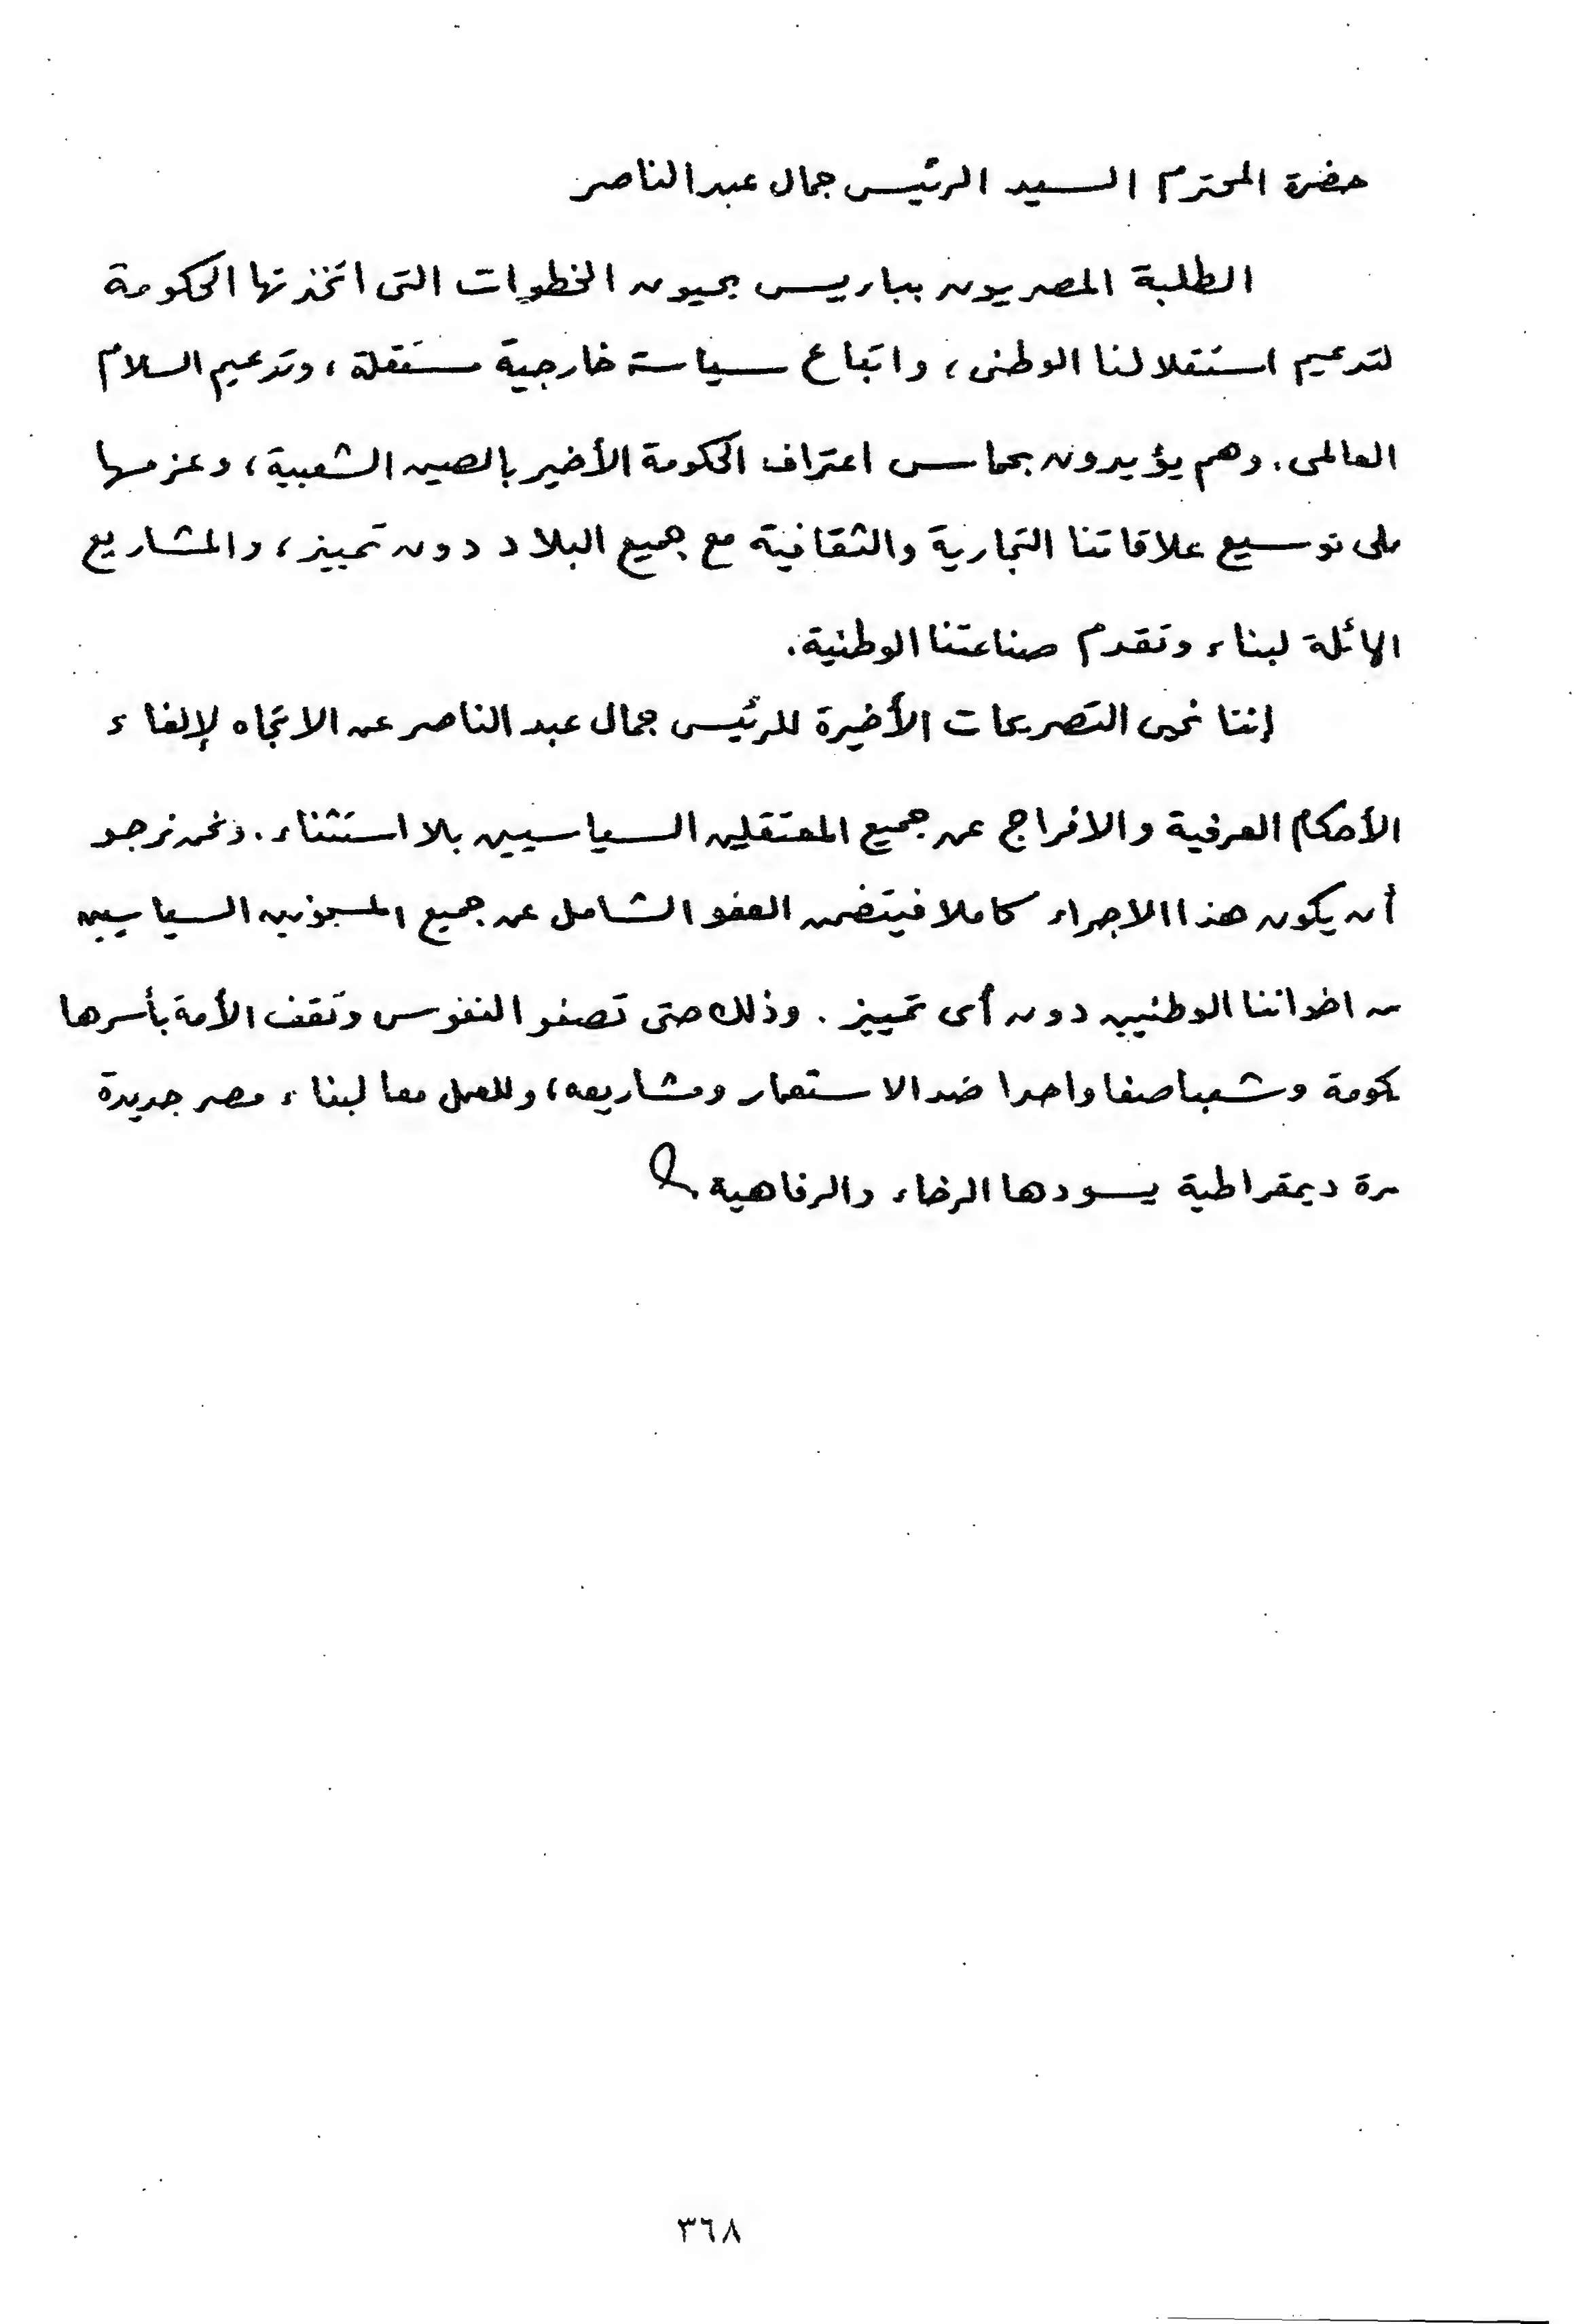 حضرة المحترم السيد الرئيس جمال عبد الناصر
الطلبة المصريون بباريس يحيون الخطوات التى اتخذتها الحكومة
لتدعيم استقلالنا الوطنى، واتباع سياسة خارجية مستقلة، وتدعيم السلام
العالمى. وهم يؤيدون بحماس اعتراف الحكومة الأخير بالصين الشعبية، وعزمها
على توسيع علاقاتنا التجارية والثقافية مع جميع البلاد دون تمييز، والمشاريع
الهائلة لبناء وتقدم صناعتنا الوطنية.
إننا نحيى التصريحات الأخيرة للرئيس جمال عبد الناصر عن الاتجاه لإلغاء
الأحكام العرفية والافراج عن جميع المعتقلين السياسيين بلا استثناء. ونحن نرجو
أن يكون هذا الاجراء كاملا فيتضمن العفو الشامل عن جميع المسجونين السياسيين
من اخواننا الوطنيين دون أى تمييز. وذلك حتى تصفو النفوس وتقف الأمة بأسرها
كومة وشعبا صفا واحدا ضد الاستعمار ومشاريعه، وللعمل معا لبناء مصر جديدة
رة ديمقراطية يسودها الرخاء والرفاهية
٣٦٨